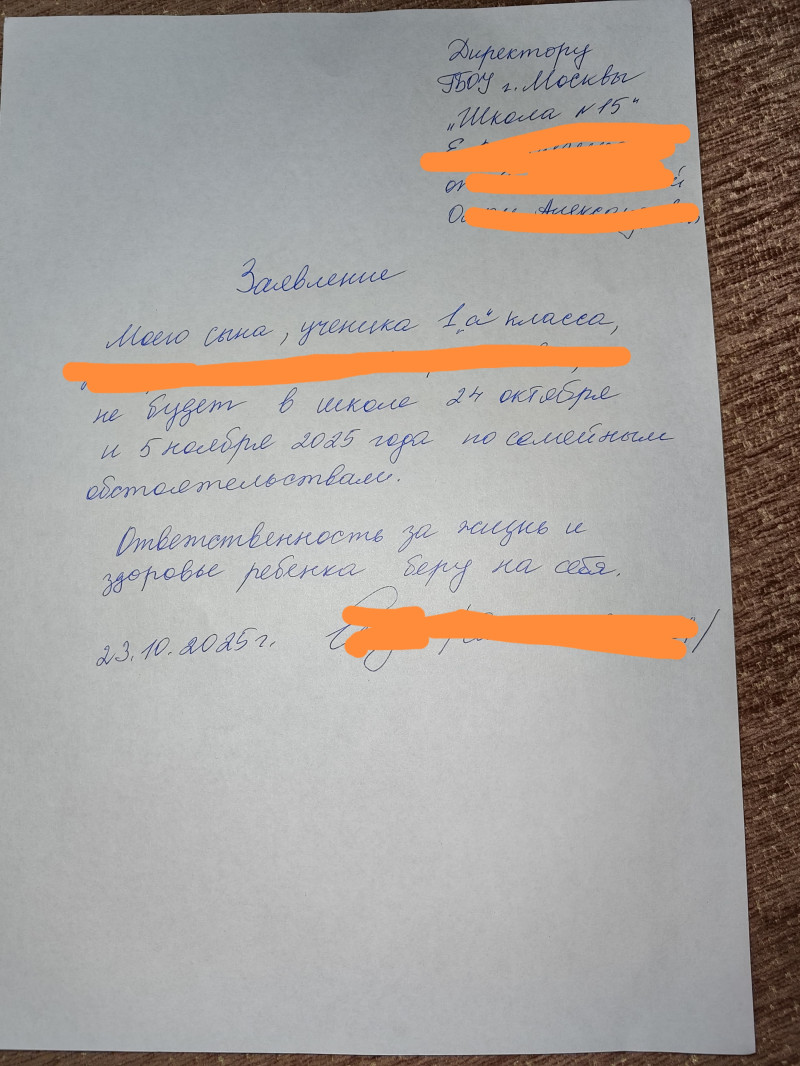 Директору
ГБОУ г. Москвы
„Школа №15"
Заявление
Моего сына, ученика 1„а" класса,
не будет в школе 24 октября
и 5 ноября 2025 года по семейным
обстоятельствам.
Ответственность за жизнь и
здоровье ребенка беру на себя.
23.10.2025г.